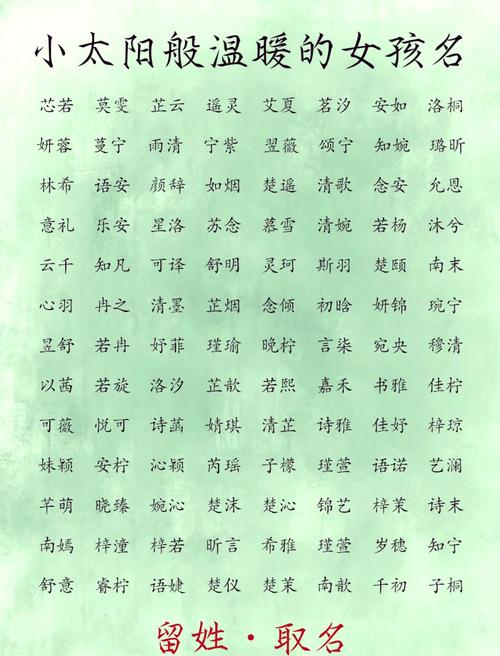 小太阳般温暖的女孩名
芯若 莫雯 芷云 遥灵 艾夏 茗汐 安如 洛桐
妍蓉 蔓宁 雨清 宁紫 翌薇 颂宁 知婉 璐昕
林希 语安 颜辞 如烟 楚遥 清歌 念安 允恩
意礼 乐安 星洛 苏念 慕雪 清婉 若杨 沐兮
云千 知凡 可译 舒明 灵珂 斯羽 楚颐 南末
心羽 冉之 清墨 芷烟 念倾 初晗 妍锦 琬宁
昱舒 若冉 妤菲 瑾瑜 晚柠 言柒 宛央 穆清
以茜 若旋 洛汐 芷歆 若熙 嘉禾 书雅 佳柠
可薇 悦可 诗菡 婧琪 清芷 诗雅 佳妤 梓琼
妹颖 安柠 沁颖 芮瑶 子檬 瑾萱 语诺 艺澜
芊萌 晓臻 婉沁 楚沫 楚沁 锦艺 梓茉 诗末
南嫣 梓潼 梓若 昕言 希雅 瑾萱 岁穗 知宁
舒意 睿柠 语婕 楚仪 楚茉 南歆 千初 子桐
留姓·取名